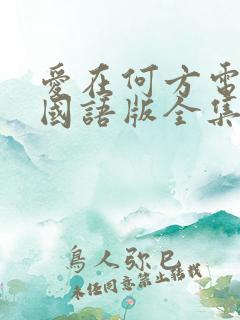 愛在何方電
國語版全集
鳥人弥巳
未经同意禁止转载